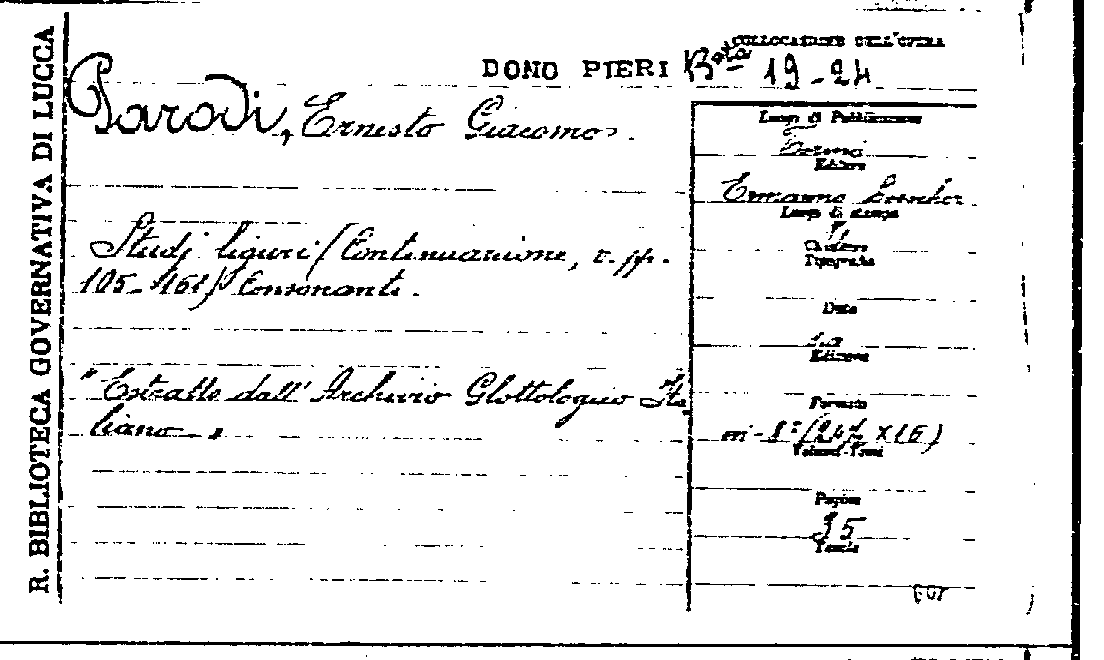 R. BIBLIOTECA GOVERNATIVA DI LUCCA
COLLOCAZIONE DELL'OPERA
DONO PIERI B.ta 19-24
Parodi, Ernesto Giacomo.
Studj liguri (Continuazione, v. pp.
105-161) Consonanti.
"Estratto dall'Archivio Glottologico Ita
liano"
Luogo di Pubblicazione
Torino
Editore
Ermanno Loescher
Luogo di stampa
Tipografia
Data
Edizione
Formato
in-8° (24½ x 16)
Volumi-Tomi
Pagine
35
Tavole